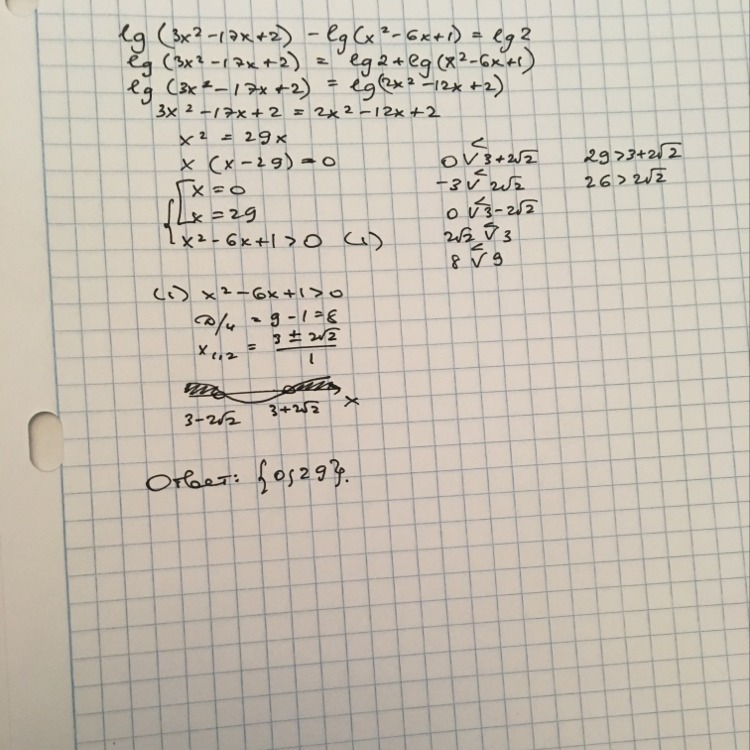 lg (3x²-17x+2) - lg(x²-6x+1) = lg 2
lg (3x²-17x+2) = lg 2 + lg (x²-6x+1)
lg (3x²-17x+2) = lg(2x²-12x+2)
3x²-17x+2 = 2x²-12x+2
x² = 29x
x (x-29) = 0
x = 0
x = 29
x²-6x+1 > 0 (1)
0 ∨ 3+2√2
<
-3 ∨ 2√2
<
0 ∨ 3-2√2
<
2√2 ∨ 3
<
8 ∨ 9
<
29 > 3+2√2
26 > 2√2
(1) x²-6x+1 > 0
D/4 = 9-1 = 8
x₁,₂ = (3 ± 2√2)/1
3-2√2 3+2√2 x
Ответ: {0; 29}.